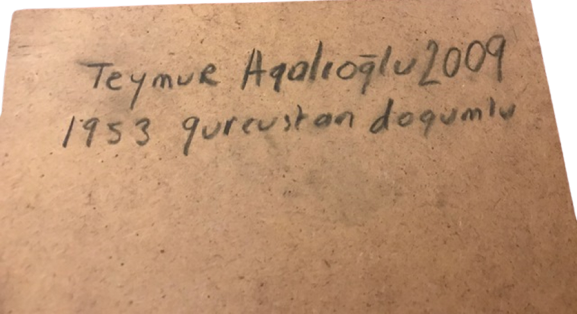 Teymur Aqalıoğlu 2009
1953 gurcustan dogumlu